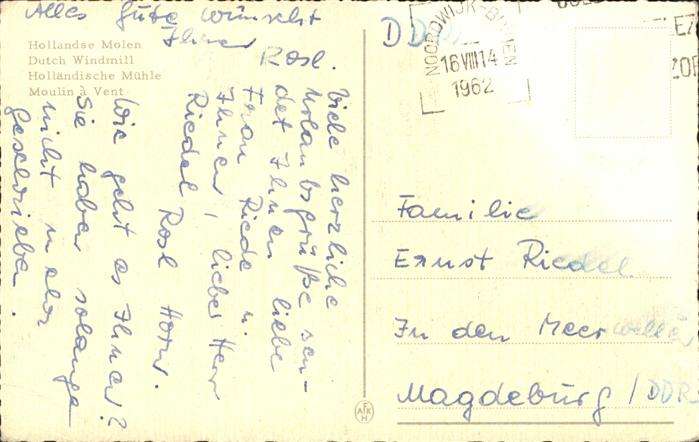 Alles Gute wünscht
Ihnen Rosl.
Hollandse Molen
Dutch Windmill
Holländische Mühle
Moulin à Vent
Viele herzliche
Urlaubsgrüße sen-
det Ihnen liebe
Frau Riedel u.
Ihnen, lieber Herr
Riedel Rosl Horn.
Wie geht es Ihnen?
Sie haben solange
nicht mehr
geschrieben.
DDR
NOORDWIJK-BINNEN
16 VIII 14
1962
Familie
Ernst Riedel
In den Meerwellen
Magdeburg / DDR